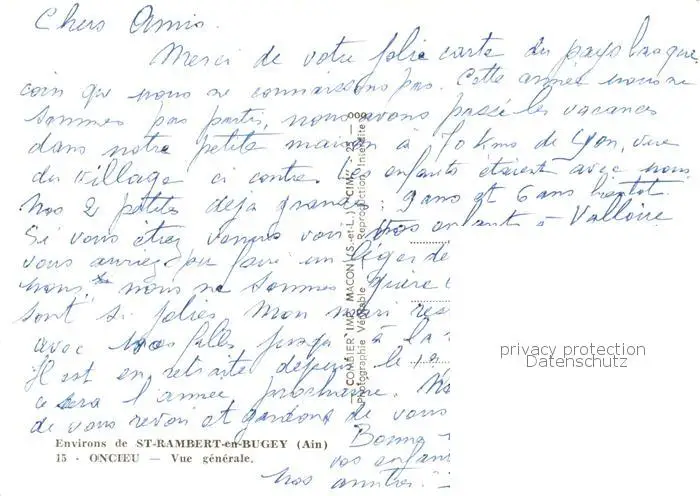 Chers Amis.
Merci de votre jolie carte du pays basque,
coin que nous ne connaissons pas. Cette année nous ne
sommes pas partis, nous avons passé les vacances
dans notre petite maison à 70 Kms de Lyon, vue
du village ci contre. Les enfants étaient avec nous.
Nos 2 petites déjà grandes: 9 ans et 6 ans bientôt.
Si vous étiez venus voir vos enfants à Valloire
vous auriez pu faire un léger de
nous, nous ne sommes guère
sont si jolies Mon mari res
avec nos filles jusqu'à la
Il est en retraite depuis le
ce sera l'année prochaine.
de vous revoir et gardons de vous
Bonne
vos enfan
Nos amitiés.
Environs de ST-RAMBERT-en-BUGEY (Ain)
15 - ONCIEU — Vue générale.
COMBIER IMP. MACON (S.-et-L.) "CIM"
Photographie Véritable - Reproduction Interdite
privacy protection
Datenschutz